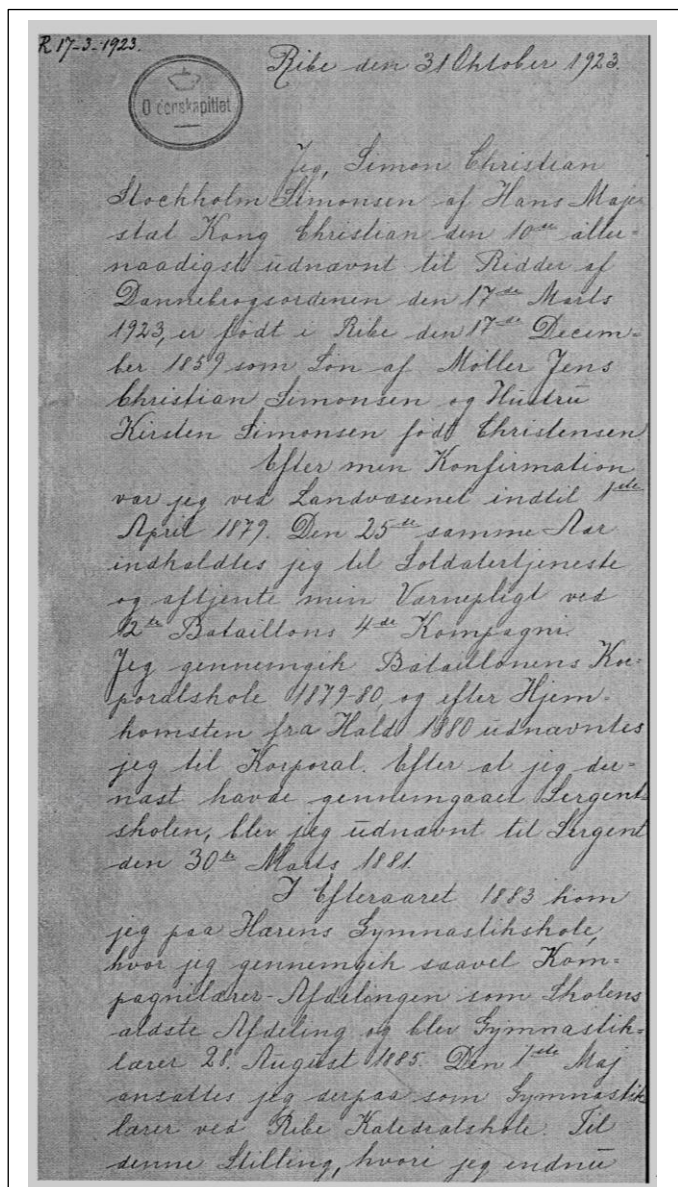 R. 17-3-1923.
Ribe den 31 Oktober 1923.
O denskapitlet
Jeg, Simon Christian
Stockholm Simonsen af Hans Maje-
stæt Kong Christian den 10de aller-
naadigst udnævnt til Ridder af
Dannebrogsordenen den 17de Marts
1923, er født i Ribe den 17de Decem-
ber 1859 som Søn af Møller Jens
Christian Simonsen og Hustru
Kirsten Simonsen født Christensen
Efter min Konfirmation
var jeg ved Landvæsenet indtil 1ste
April 1879. Den 25de samme Aar
indkaldtes jeg til Soldatertjeneste
og aftjente min Værnepligt ved
12te Bataillons 4de Kompagni.
Jeg gennemgik Bataillonens Kor-
poralskole 1879-80, og efter Hjem-
komsten fra Hald 1880 udnævntes
jeg til Korporal. Efter at jeg der-
næst havde gennemgaaet Sergent-
skolen, blev jeg udnævnt til Sergent
den 30te Marts 1881.
I Efteraaret 1883 kom
jeg paa Hærens Gymnastikskole,
hvor jeg gennemgik saavel Kom-
pagnilærer-Afdelingen som Skolens
ældste Afdeling og blev Gymnastik-
lærer 28. August 1885. Den 1ste Maj
ansattes jeg derpaa som Gymnastik
lærer ved Ribe Katedralskole. Til
denne Stilling, hvori jeg endnu